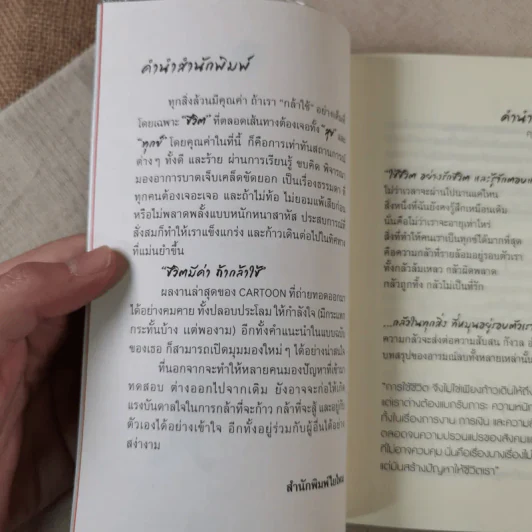 คำนำสำนักพิมพ์
ทุกสิ่งล้วนมีคุณค่า ถ้าเรา "กล้าใช้" อย่างเต็มที่
โดยเฉพาะ "ชีวิต" ที่ตลอดเส้นทางต้องเจอทั้ง "สุข" และ
"ทุกข์" โดยคุณค่าในที่นี้ ก็คือการเท่าทันสถานการณ์
ต่างๆ ทั้งดี และร้าย ผ่านการเรียนรู้ ขบคิด พิจารณา
มองอาการบาดเจ็บเคล็ดขัดยอก เป็นเรื่องธรรมดา ที่
ทุกคนต้องเจอะเจอ และถ้าไม่ท้อ ไม่ยอมแพ้เสียก่อน
หรือไม่พลาดพลั้งแบบหนักหนาสาหัส ประสบการณ์ที่
สั่งสมก็ทำให้เราแข็งแกร่ง และก้าวเดินต่อไปในทิศทาง
ที่แม่นยำขึ้น
"ชีวิตมีค่า ถ้ากล้าใช้"
ผลงานล่าสุดของ CARTOON ที่ถ่ายทอดออกมา
ได้อย่างคมคาย ทั้งปลอบประโลม ให้กำลังใจ (มีกระแทก
กระทั้นบ้าง แต่พองาม) อีกทั้งคำแนะนำในแบบฉบับ
ของเธอ ก็สามารถเปิดมุมมองใหม่ๆ ได้อย่างน่าสนใจ
ที่นอกจากจะทำให้หลายคนมองปัญหาที่เข้ามา
ทดสอบ ต่างออกไปจากเดิม ยังอาจจะก่อให้เกิด
แรงบันดาลใจในการกล้าที่จะก้าว กล้าที่จะสู้ และอยู่กับ
ตัวเองได้อย่างเข้าใจ อีกทั้งอยู่ร่วมกับผู้อื่นได้อย่าง
สง่างาม
สำนักพิมพ์
คำนำ
"ใช้ชีวิต อย่างรักชีวิต และรู้จัก
ไม่ว่าเวลาจะผ่านไปนานแค่ไหน
สิ่งหนึ่งที่ฉันยังคงรู้สึกเหมือนเดิม
นั่นคือไม่ว่าเราจะอายุเท่าไหร่
สิ่งที่ทำให้คนเราเป็นทุกข์ได้มากที่สุด
คือความกลัวที่รายล้อมอยู่รอบตัวเรา
ทั้งกลัวล้มเหลว กลัวผิดพลาด
กลัวถูกทิ้ง กลัวไม่เป็นที่รัก
...กลัวในทุกสิ่ง ที่หมุนอยู่รอบตัวเรา
ความกลัวจะส่งต่อความสับสน กังวล
บทสรุปของอารมณ์ลบทั้งหลายเหล่านั้น
"การใช้ชีวิต จึงไม่ใช่เพียงก้าวเดินให้ถึง
แต่เราต่างต้องแบกรับภาระ ความหนัก
ทั้งในเรื่องการงาน การเงิน และความ
ตลอดจนความปรวนแปรของสังคม
ที่ไม่อาจควบคุม นั่นคือเรื่องบางเรื่องไม่
แต่มันสร้างปัญหาให้ชีวิตเรา"